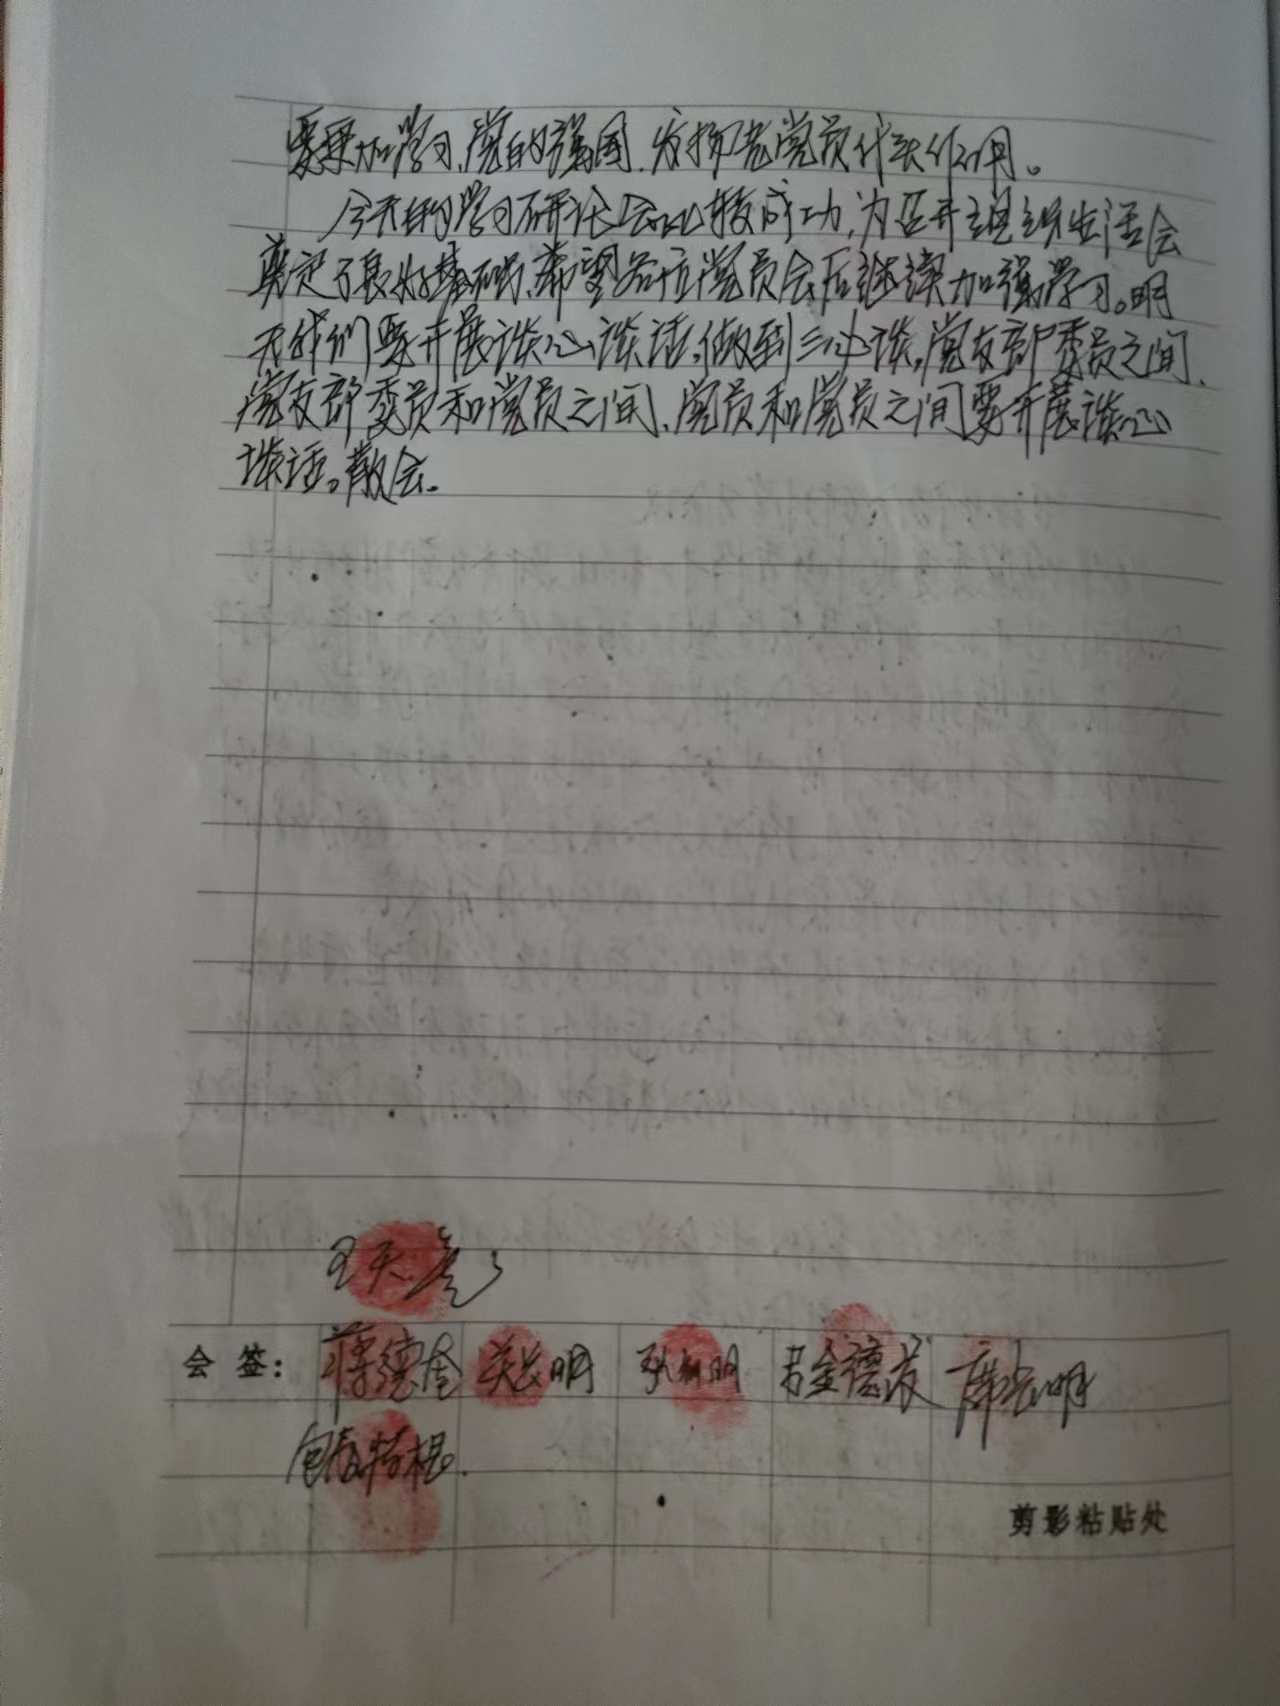 要更加学习,党的强国,发扬老党员代头作用。
今天的学习研讨会比较成功,为召开组织生活会
奠定了良好基础,希望各位党员会后继续加强学习。明
天我们要开展谈心谈话,做到三必谈,党支部委员之间、
党支部委员和党员之间、党员和党员之间要开展谈心
谈话。散会。
王天
会 签: 蒋德金 关长明 明 金德 席长明
特根
剪影粘贴处